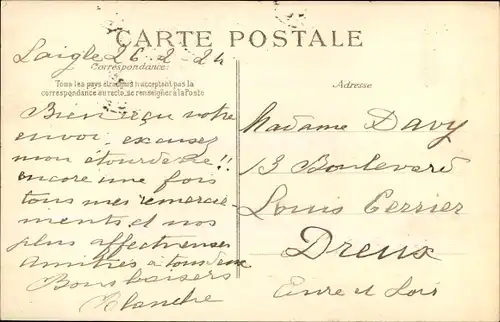 CARTE POSTALE
Laigle 26-2-24
Correspondance
Tous les pays étrangers n'acceptant pas la
correspondance au recto, se renseigner à la Poste
Bien reçu votre
envoi, excusez
mon étourderie!!
encore une fois
tous mes remercie-
ments et nos
plus affectueuses
amitiés à tous deux
Bons baisers
Blanche
Adresse
Madame Davy
13 Boulevard
Louis Terrier
Dreux
Eure et Loir